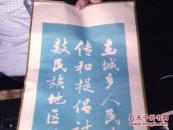 土城乡人民
传和提倡计
数民族地区